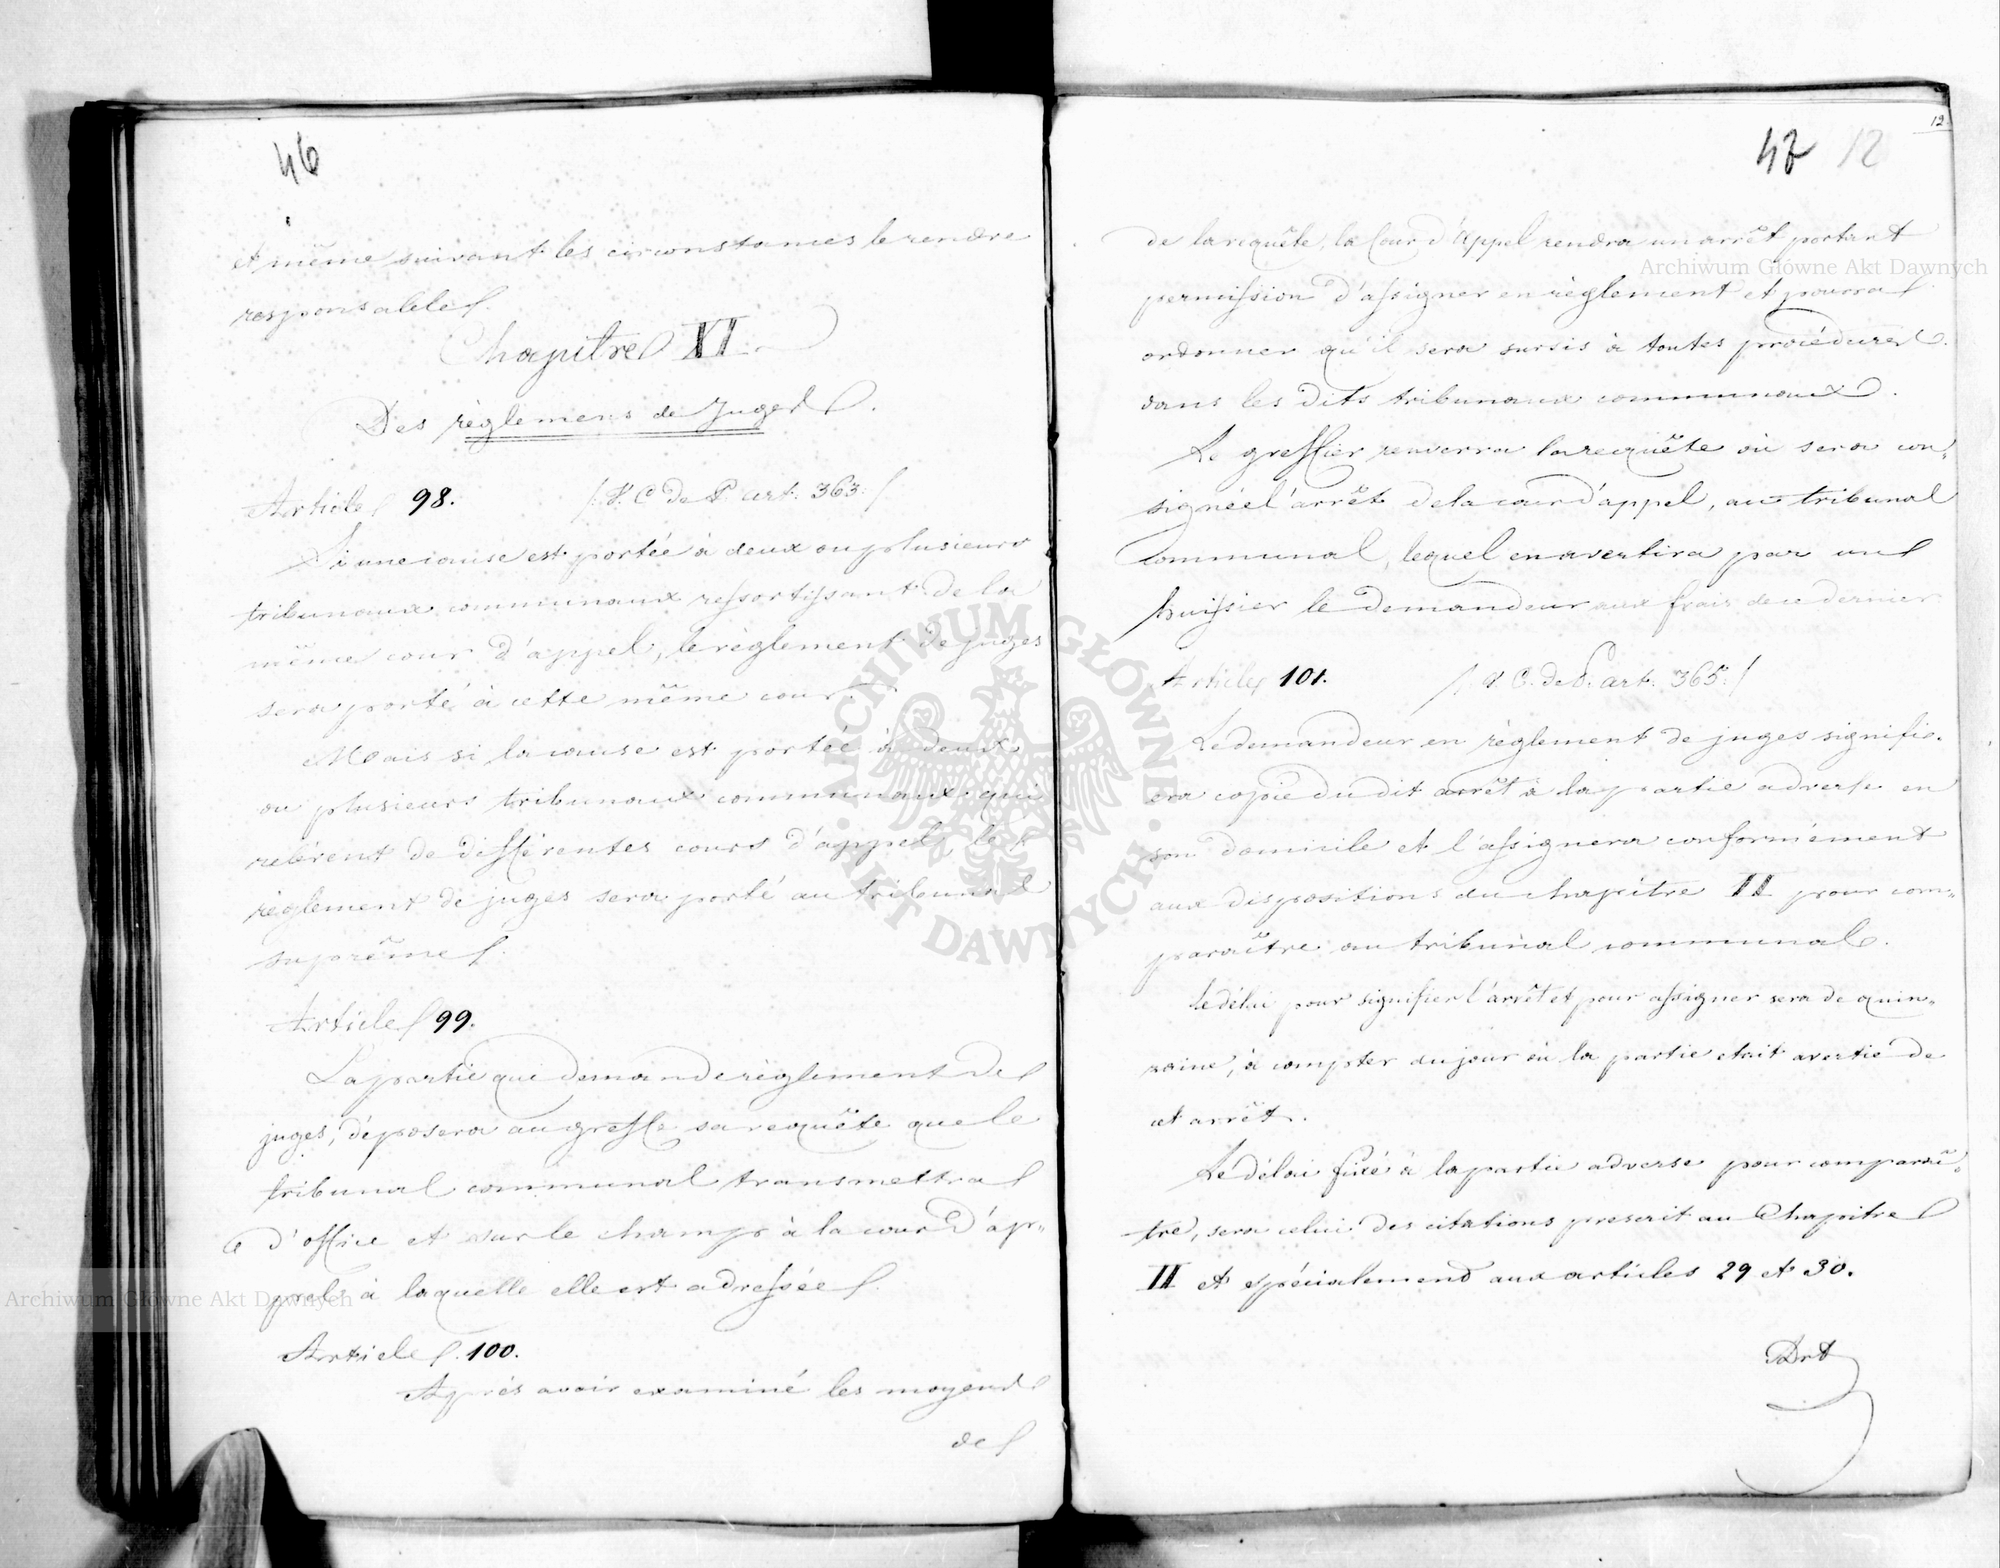 46
et même suivant les circonstances le rendre
responsable.
Chapitre XI.
Des règlemens de Juges.
Article 98. /: V. C. de P. art. 363 :/
Si une cause est portée à deux ou plusieurs
tribunaux communaux ressortissant de la
même cour d'appel, le règlement de juges
sera porté à cette même cour.
Mais si la cause est portée à deux
ou plusieurs tribunaux communaux qui
relèrent de différentes cours d'appel, le
règlement de juges sera porté au tribunal
suprême.
Article 99.
La partie qui demande règlement de
juges, déposera au greffe sa requête que le
tribunal communal transmettra
d'office et sur le champs à la cour d'ap-
pel à laquelle elle est adressée.
Article 100.
Après avoir examiné les moyens
de
12
47 12
de la requête, la Cour d'Appel rendra un arrêt portant
permission d'assigner en règlement et pourra
ordonner qu'il sera sursis à toutes procédures
dans les dits tribunaux communaux.
Le greffier renverra la requête où sera con-
signée l'arrêt de la cour d'appel, au tribunal
communal, lequel en avertira par un
huissier le demandeur aux frais de ce dernier
Article 101. /: V. C. de P. art. 365 :/
Le demandeur en règlement de juges signifie-
era copie du dit arrêt à la partie adverse en
son domicile et l'assignera conformément
aux dispositions du chapitre II pour com-
paraître au tribunal communal.
Le délai pour signifier l'arrêt et pour assigner sera de quin-
zaine, à compter du jour où la partie etait avertie de
cet arrêt.
Le délai fixé à la partie adverse pour comparaî-
tre, sera celui des citations prescrit au Chapitre
II et spécialement aux articles 29 et 30.
Art
Archiwum Główne Akt Dawnych
Archiwum Główne Akt Dawnych
ARCHIWUM GŁÓWNE AKT DAWNYCH